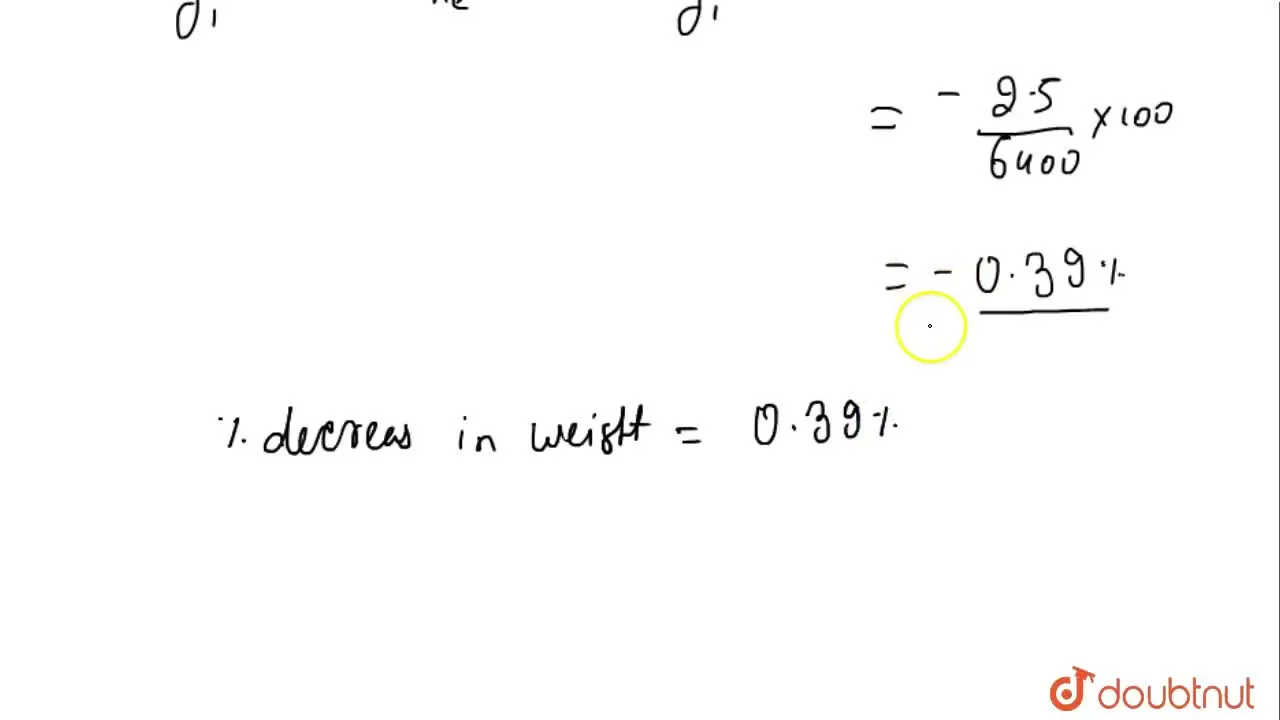 = - 2.5
6400 × 100
= - 0.39 %
% decreas in weight = 0.39 %
doubtnut